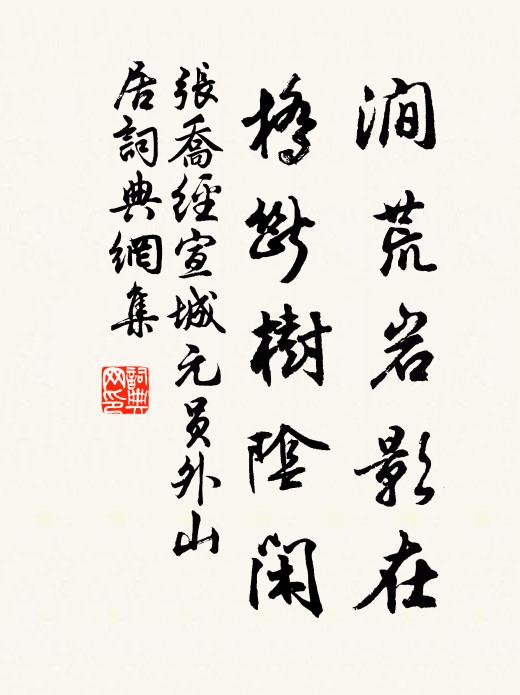 澗荒岩影在
橋斷樹陰閑
張喬經宣城元员外山
居詞典網集
詞典网印